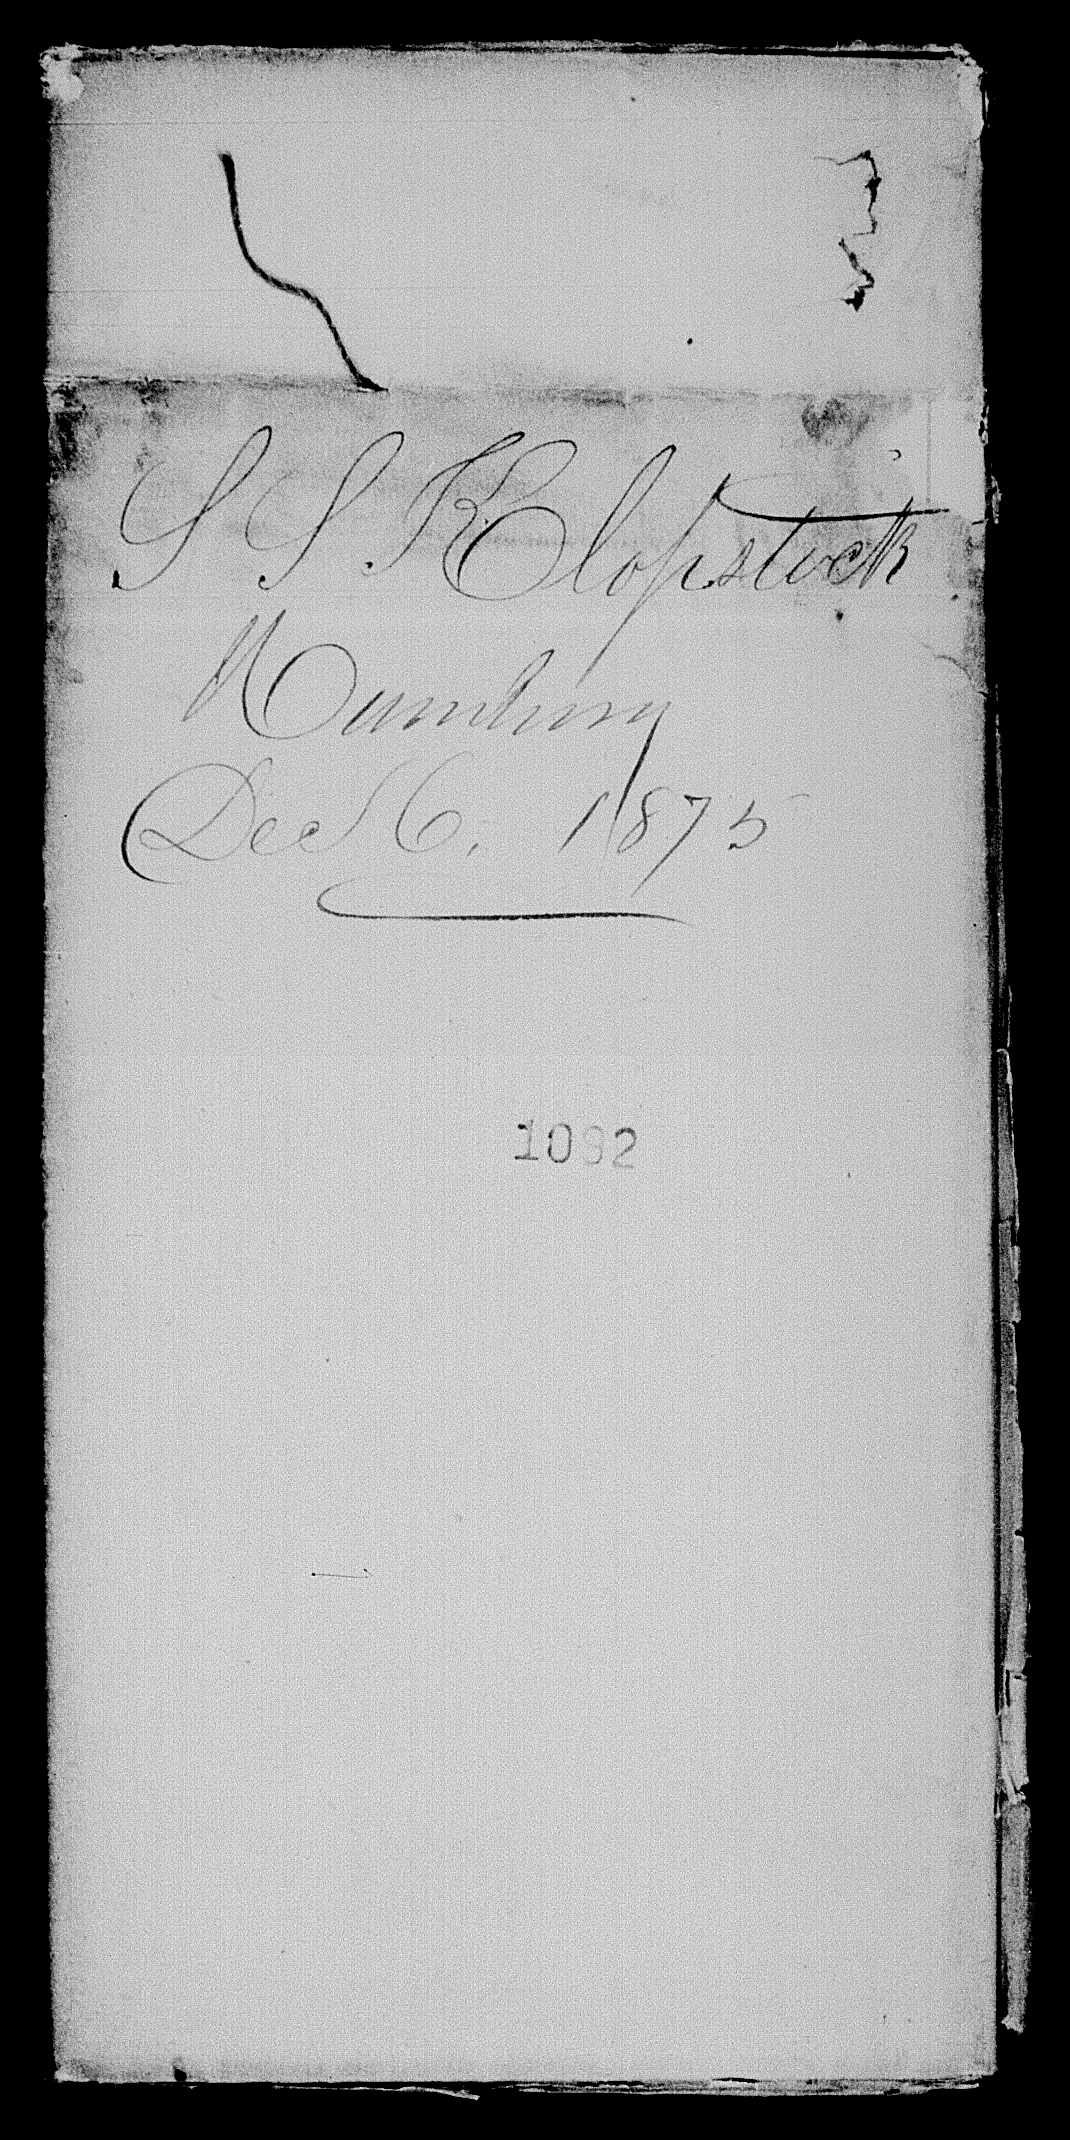 S S Klopstock
Hamburg
Dec 6, 1875
1092